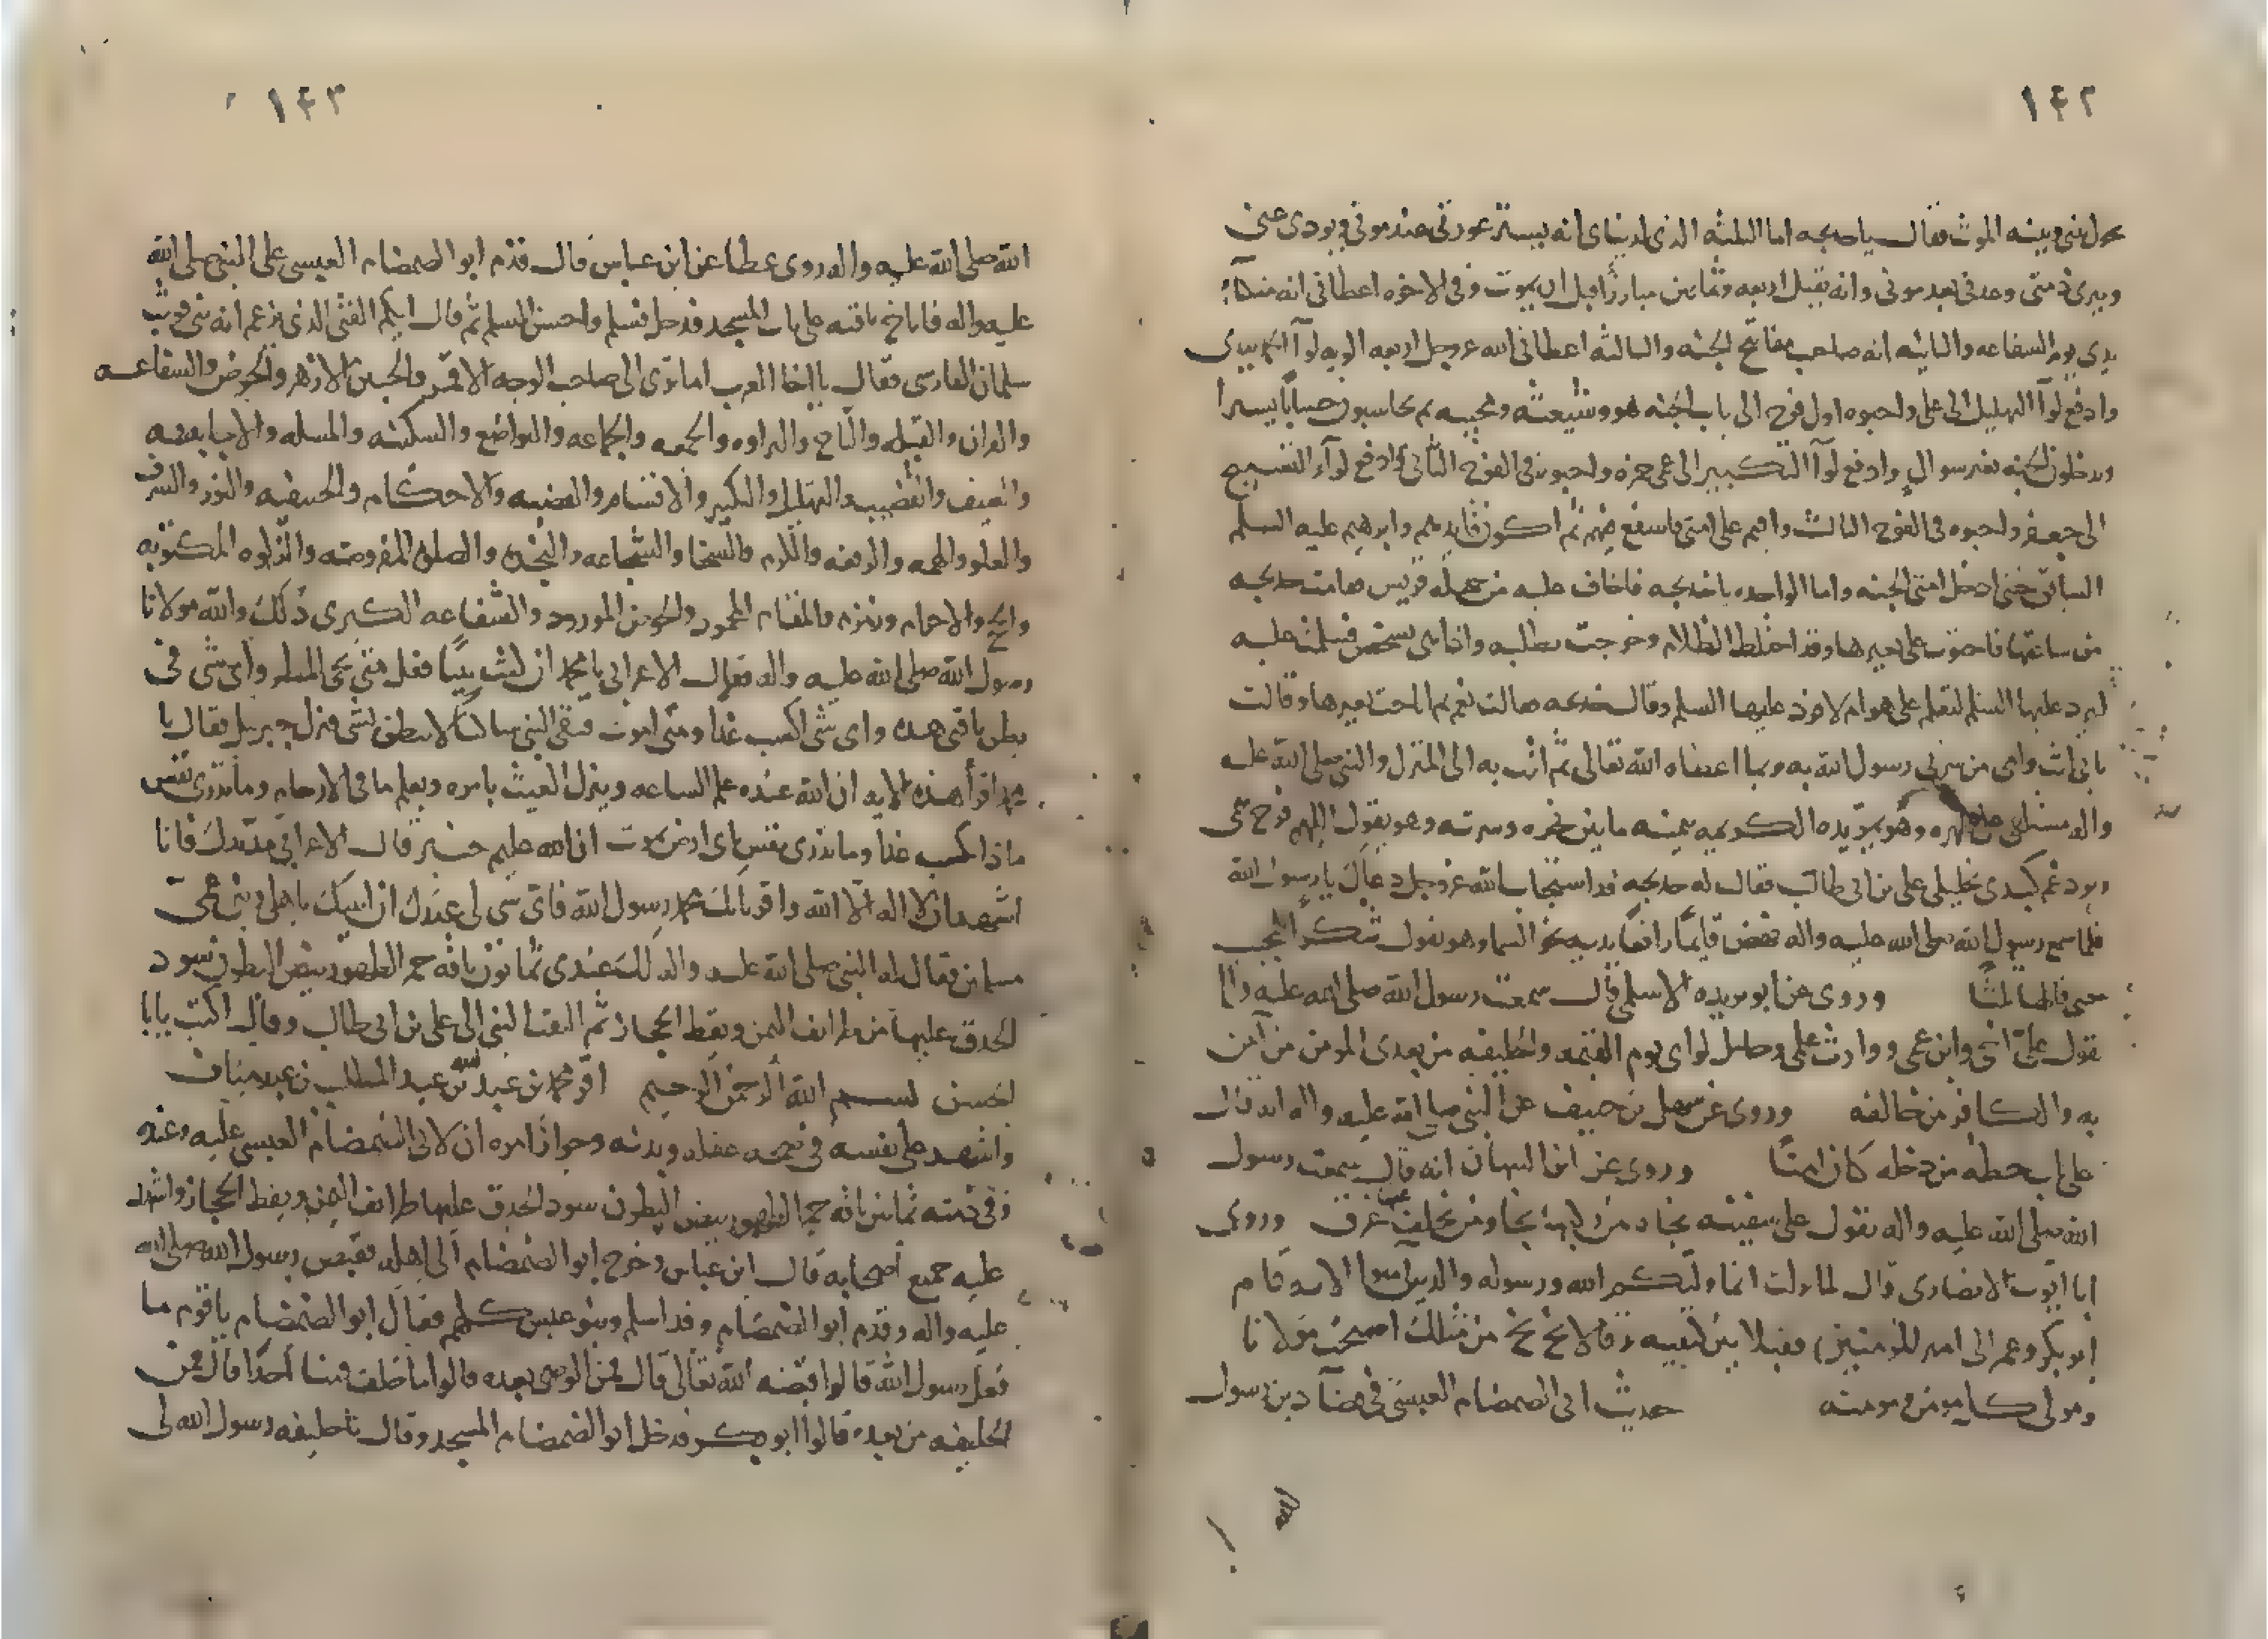 ١٤٢
بيني وبينه الموت فقال يا خديجه اما الثلثه الذى لدنياى انه يستر عورتى عند موتى ويودى عنى
ويبرى ذمتى وعدتى بعد موتى وانه يقتل اربعه وثمانين مبارزا قبل ان يموت وفى الاخره اعطانى انه متكا
يدى يوم الشفاعه والثانيه انه صاحب مفاتيح الجنه والثالثه اعطانى الله عز وجل اربعه الويه لوآ الحمد بيدى
وادفع لوآ التهليل الى على واحبوه اول فوج الى باب الجنه هو وشيعته ومحبيه ثم يحاسبون حسابا يسيرا
ويدخلون الجنه بغير سوال وادفع لوآ التكبير الى عمى حمزه واحبوه فى الفوج الثانى وادفع لوآء التسبيح
الى جعفر واحبوه فى الفوج الثالث واقيم على امتى فاشفع فيهم ثم اكون قايدهم وابرهيم عليه السلم
السابق حتى ادخل امتى الجنه واما الواحده يا خديجه فاخاف عليه من جهله قريش خديجه
من ساعتها على بعيرها وقد اختلط الظلام وخرجت تطلبه واذا هى بشخص فسلمت عليه
ليرد عليها السلم لتعلم على هو ام لا فرد عليها السلم وقال خديجه قالت نعم ثم اناخت بعيرها وقالت
بابى انت وامى من رسول الله به وبما اعطاه الله تعالى ثم اتت به الى المنزل والنبى صلى الله عليه
واله مستلقى على ظهره وهو يمر يده الكريمه يمينه ما بين نحره وسرته وهو يقول اللهم فرج همى
وبرد غم كبدى بخليلى على بن ابى طالب فقال له خديجه قد استجاب الله عز وجل دعاك يا رسول الله
فلما سمع رسول الله صلى الله عليه واله نهض قايما رافعا يديه نحو السما وهو يقول شكرا لمجيب
وروى عن ابو بريده الاسلمى قال سمعت رسول الله صلى الله عليه واله
يقول على اخى وابن عمى ووارث علمى وحامل لواى يوم القيمه والخليفه من بعدى المومن من آمن
به والكافر من خالفه وروى عن سهل بن حنيف عن النبى صلى الله عليه واله انه قال
على باب حطه من دخله كان امنا وروى عن ابن التيهان انه قال سمعت رسول
الله صلى الله عليه واله يقول على سفينه نجاه من ركبها نجا ومن تخلف عنها غرق وروى
ابا ايوب الانصارى قال لما نزلت انما وليكم الله ورسوله والذين امنوا الايه قام
ابو بكر وعمر الى امير المومنين فقبلا بين عينيه وقالا بخ بخ من مثلك اصبحت مولانا
ومولى كل مومن ومومنه حديث ابى الصمصام العبسى فى قضآ دين رسول
١٤٣
الله صلى الله عليه واله روى عطا عن ابن عباس قال قدم ابو الصمصام العبسى على النبى صلى الله
عليه واله فاناخ ناقته على باب المسجد فدخل فسلم واحسن التسلم ثم قال ايكم الفتى الذى يزعم انه نبى فوثب
سلمان الفارسى فقال يا اخا العرب اما ترى الى صاحب الوجه الاقمر والجبين الازهر والحوض والشفاعه
والقران والقبله والتاج والهراوه والجمعه والجماعه والتواضع والسكينه والمسله والاجابه
والسيف والقضيب والتهليل والتكبير والاقسام والقضيه والاحكام والحنيفه والنور والشرف
والعلو والهمه والرفعه والكرم والسخا والشجاعه والنجده والصلوه المفروضه والزكوه المكتوبه
والحج والاحرام وزمزم والمقام المحمود والحوض المورود والشفاعه الكبرى ذلك والله مولانا
رسول الله صلى الله عليه واله فقال الاعرابى يا محمد ان كنت نبيا فقل متى يجى المطر واى شى فى
بطن ناقتى هذه واى شى اكسب غدا ومتى اموت فبقى النبى ساكتا لا ينطق بشى فنزل جبريل فقال يا
محمد اقرأ هذه الايه ان الله عنده علم الساعه وينزل الغيث بامره ويعلم ما فى الارحام وما تدرى نفس
ماذا تكسب غدا وما تدرى نفس باى ارض تموت ان الله عليم خبير قال الاعرابى مد يدك فانا
اشهد ان لا اله الا الله واقر بانك محمد رسول الله فاى شى لى عندك ان اتيتك باهلى وبنى عمى
مسلمين فقال له النبى صلى الله عليه واله لك عندى ثمانون ناقه حمر الظهور بيض البطون سود
الحدق عليها من طرايف اليمن ونقط الحجاز ثم التفت النبى الى على بن ابى طالب وقال اكتب يا ابا
الحسن بسم الله الرحمن الرحيم اقر محمد بن عبد الله بن عبد المطلب بن عبد مناف
واشهد على نفسه فى صحه عقله وبدنه وجواز امره ان لابى الصمصام العبسى عليه وعنده
وفى ذمته ثمانين ناقه حمر الظهور بيض البطون سود الحدق عليها طرايف اليمن ونقط الحجاز واشهد
عليه جميع اصحابه قال ابن عباس وخرج ابو الصمصام الى اهله فقبض رسول الله صلى الله
عليه واله وقدم ابو الصمصام وقد اسلم وبنو عبس كلهم فقال ابو الصمصام يا قوم ما
فعل رسول الله قالوا قبضه الله تعالى قال فمن الوصى بعده قالوا ما خلف فينا احدا قال فمن
الخليفه من بعده قالوا ابو بكر فدخل ابو الصمصام المسجد وقال يا خليفه رسول الله لى